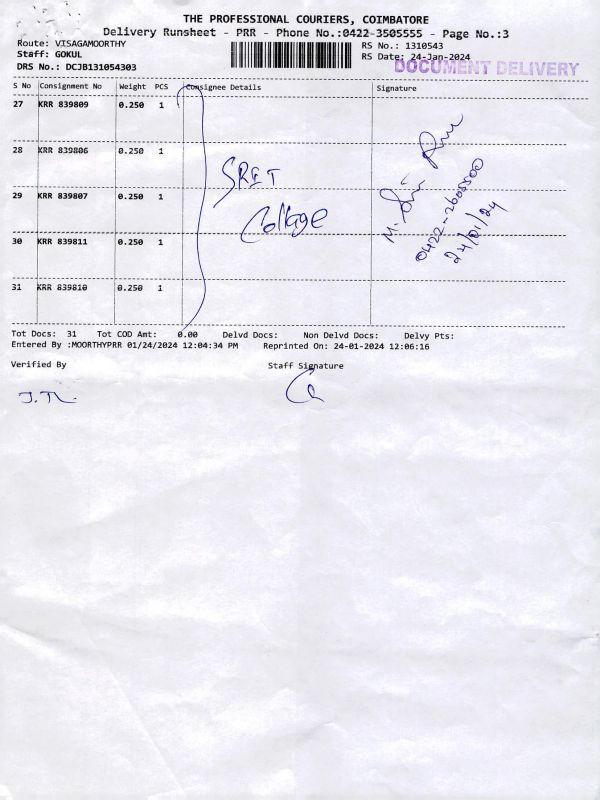 THE PROFESSIONAL COURIERS, COIMBATORE
Delivery Runsheet - PRR - Phone No.:0422-3505555 - Page No.:3
Route: VISAGAMOORTHY
Staff: GOKUL
DRS No.: DCJB131054303
RS No.: 1310543
RS Date: 24-Jan-2024
DOCUMENT DELIVERY
S No Consignment No Weight PCS Consignee Details Signature
27 KRR 839809 0.250 1
28 KRR 839806 0.250 1
29 KRR 839807 0.250 1
30 KRR 839811 0.250 1
31 KRR 839810 0.250 1
SRET
College
M.
24/01/24
Tot Docs: 31 Tot COD Amt: 0.00 Delvd Docs: Non Delvd Docs: Delvy Pts:
Entered By :MOORTHYPRR 01/24/2024 12:04:34 PM Reprinted On: 24-01-2024 12:06:16
Verified By Staff Signature